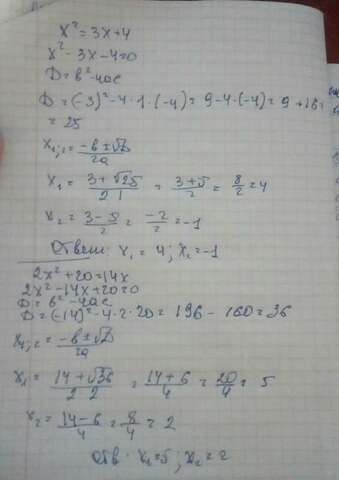 x² = 3x+4
x² - 3x - 4 = 0
D = в² - 4ac
D = (-3)² - 4 · 1 · (-4) = 9 - 4 · (-4) = 9 + 16 =
= 25
x₁;₂ = (-в ± √D)/2a
x₁ = (3 + √25)/(2 · 1) = (3+5)/2 = 8/2 = 4
x₂ = (3-5)/2 = -2/2 = -1
Ответ: x₁ = 4; x₂ = -1
2x² + 20 = 14x
2x² - 14x + 20 = 0
D = в² - 4ac
D = (-14)² - 4 · 2 · 20 = 196 - 160 = 36
x₁;₂ = (-в ± √D)/2a
x₁ = (14 + √36)/(2 · 2) = (14+6)/4 = 20/4 = 5
x₂ = (14-6)/4 = 8/4 = 2
Отв: x₁ = 5; x₂ = 2